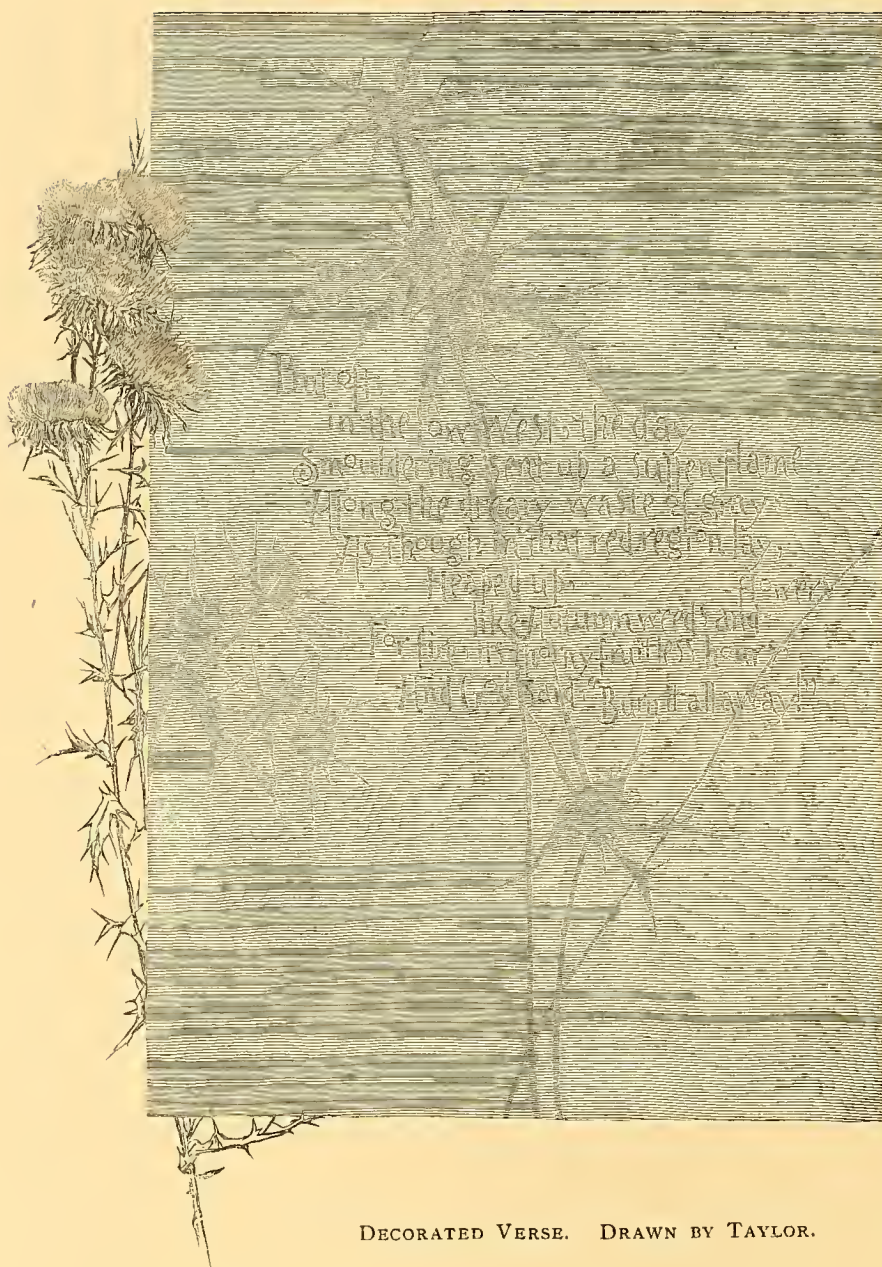 But off,
in the low West, the day
Smouldering sent up a sullen flame
Along the dreary waste of gray
As though in that red region lay,
Heaped up flowers
like Autumn weeds and
For fire its thorny fruitless hours
And God said "Burn it all away!"
DECORATED VERSE. DRAWN BY TAYLOR.